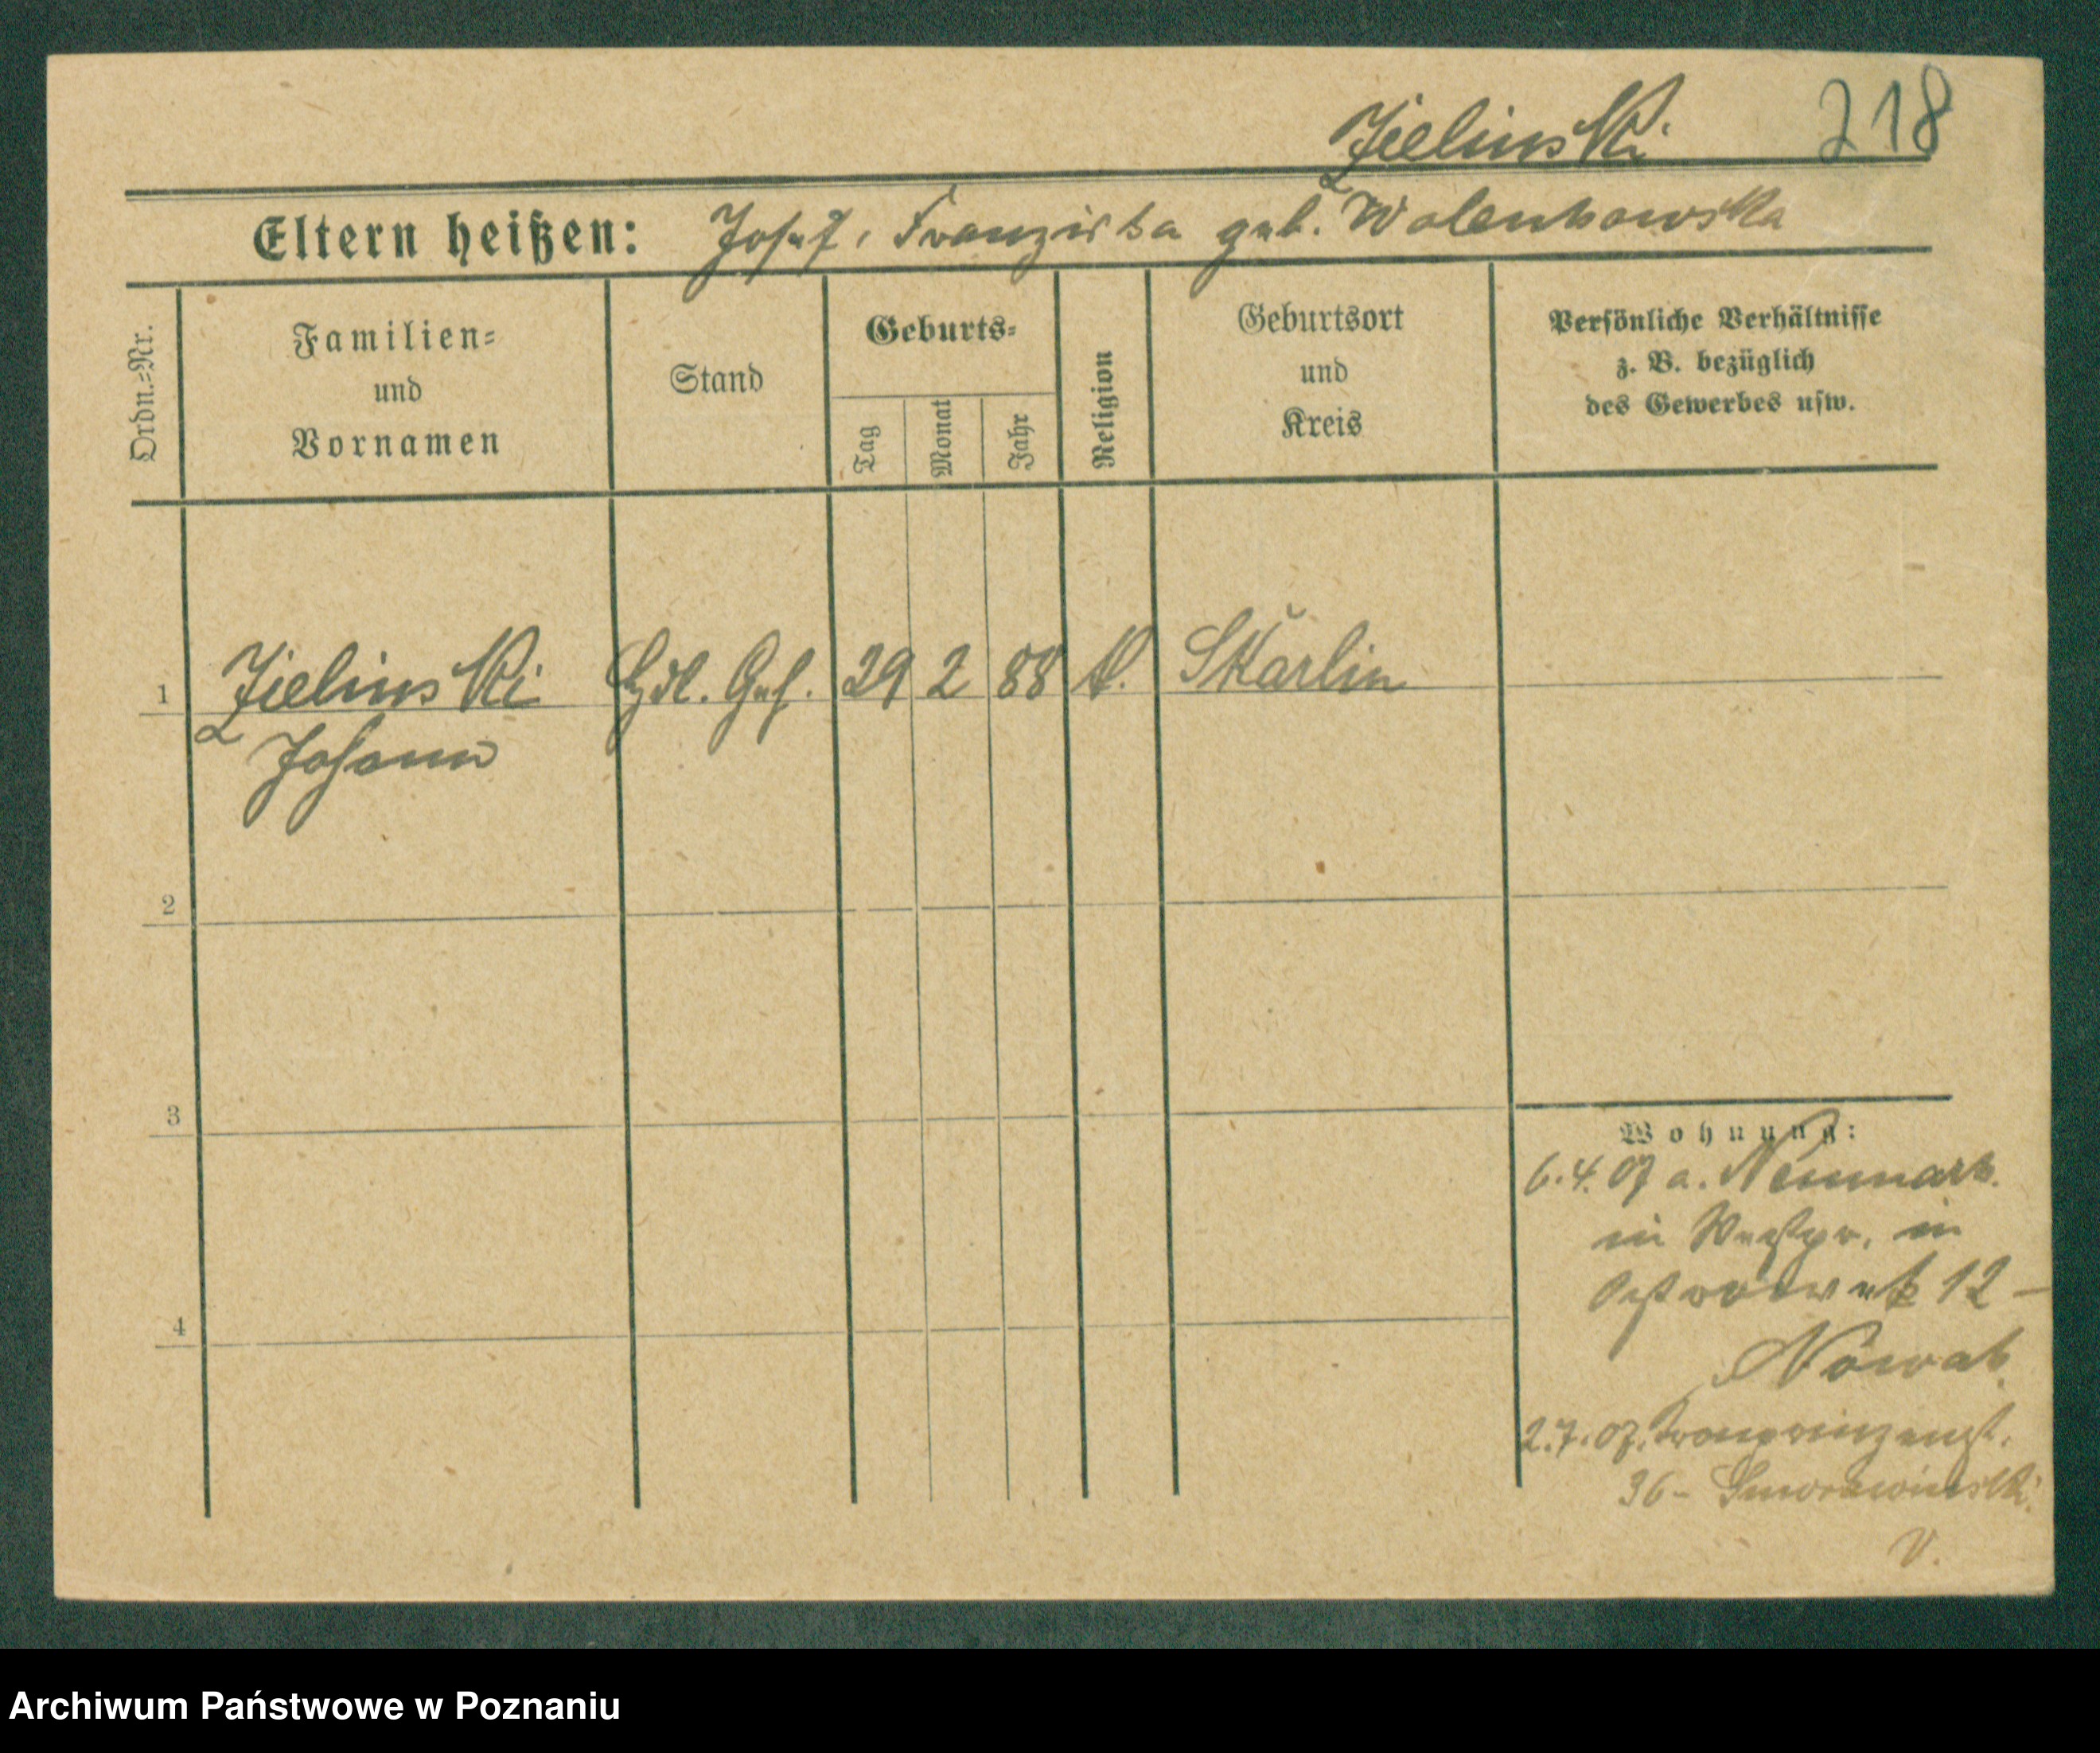 Zielinski 218
Eltern heißen: Josef, Franziska geb. Wolenkowska
Ordn.=Nr.
Familien=
und
Vornamen
Stand
Geburts=
Tag
Monat
Jahr
Religion
Geburtsort
und
Kreis
Persönliche Verhältnisse
z. B. bezüglich
des Gewerbes usw.
1 Zielinski Hdl. Geh. 29 2 88 k. Skarlin
Johann
2
3
4
Wohnung:
6.4.07 a. Neumark
in Westpr. in
12 -
Nowak
2.7.07. Kronprinzenst.
36 -
V.
Archiwum Państwowe w Poznaniu